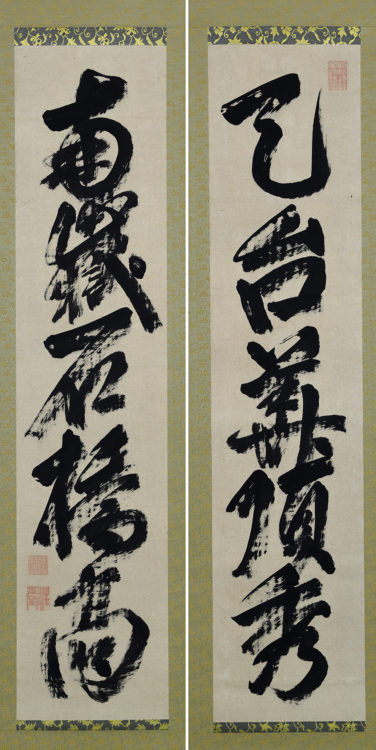 天台華頂秀
南嶽石橋高